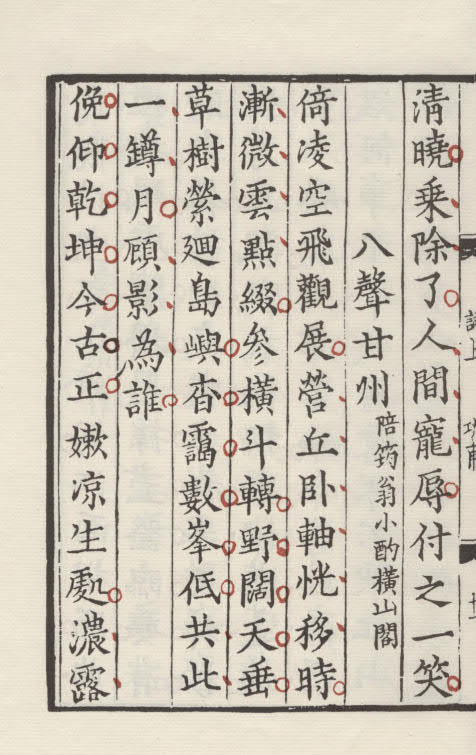 清曉乘除了人間寵辱付之一笑
八聲甘州 陪筠翁小酌橫山閣
倚凌空飛觀展營丘卧軸恍移時
漸微雲點綴參橫斗轉野闊天垂
草樹縈廻島嶼杳靄數峯低共此
一罇月顧影為誰
俛仰乾坤今古正嫩凉生處濃露